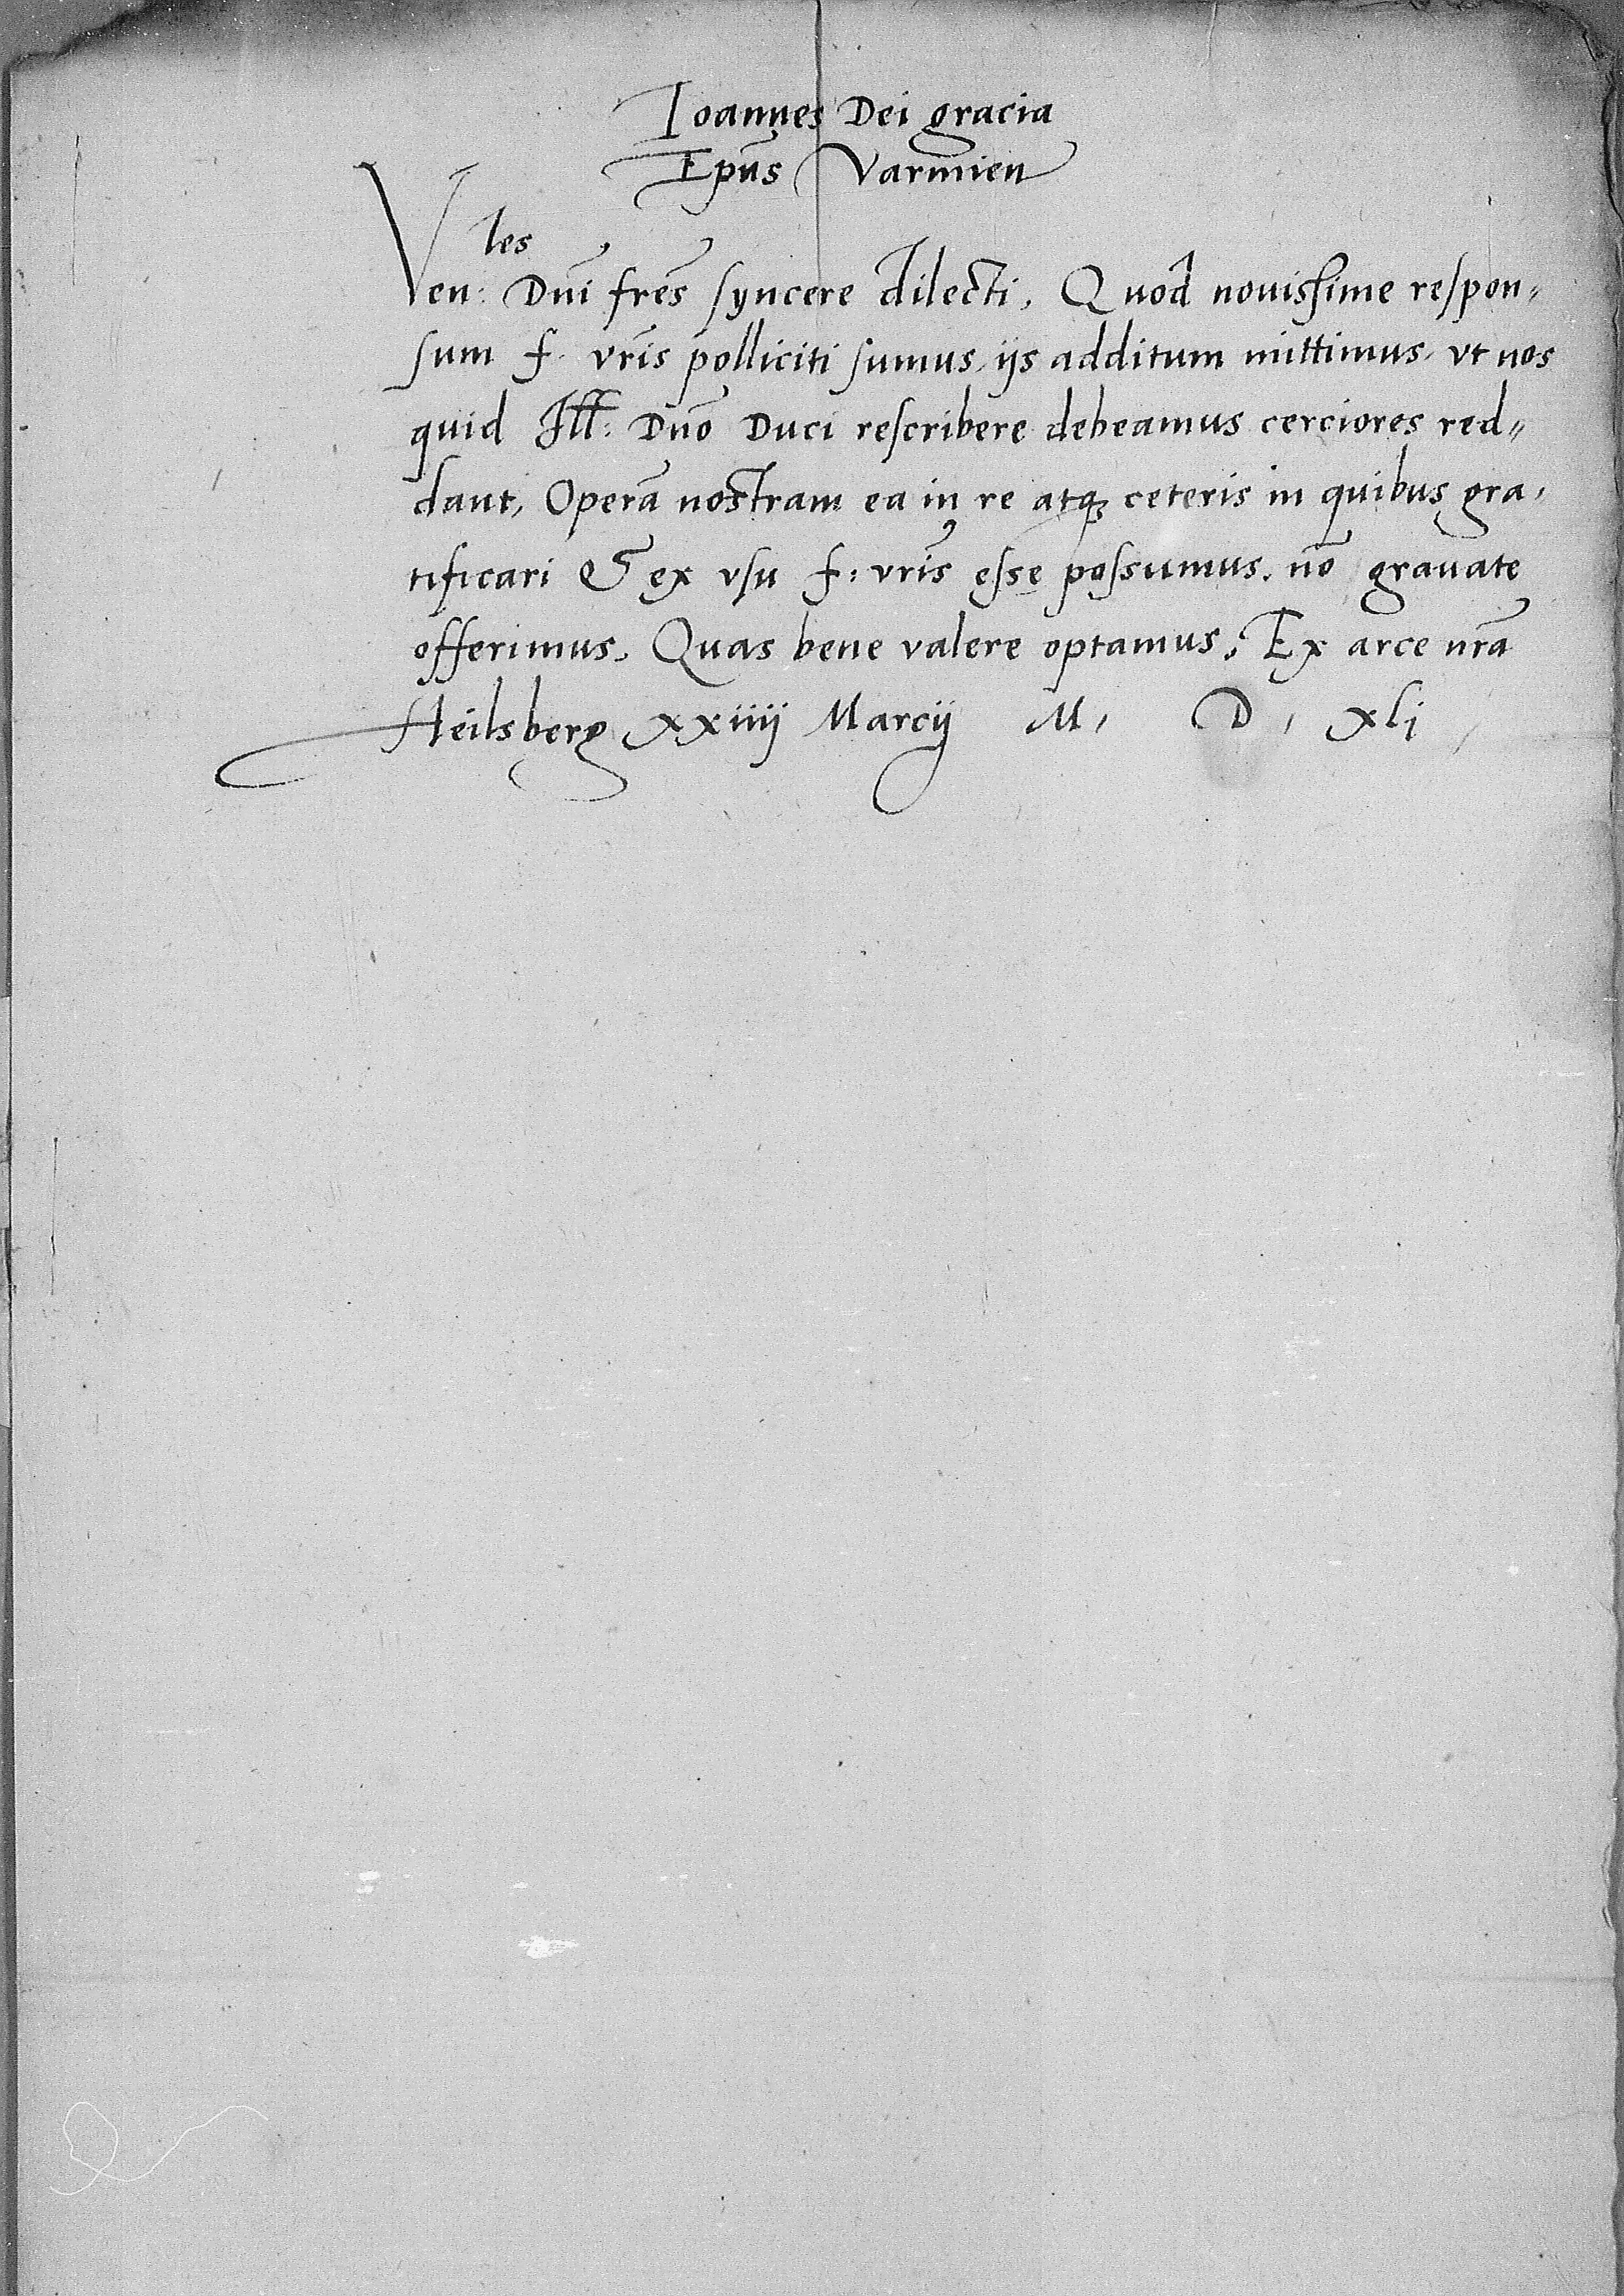 Ioannes Dei gracia
Ep̃us Varmien̄
Ven:les Dñi fr̃es syncere dilecti, Quod nouissime respon„
sum f. vr̃is polliciti sumus, ijs additum mittimus, vt nos
quid Ill: Dño Duci rescribere debeamus cerciores red„
dant, Operã nostram ea in re atq; ceteris in quibus gra,
tificari & ex vsu f: vr̃is esse possumus, nõ grauate
offerimus, Quas bene valere optamus; Ex arce nr̃a
Heilsberg xxiiij Marcij M, D, xlj